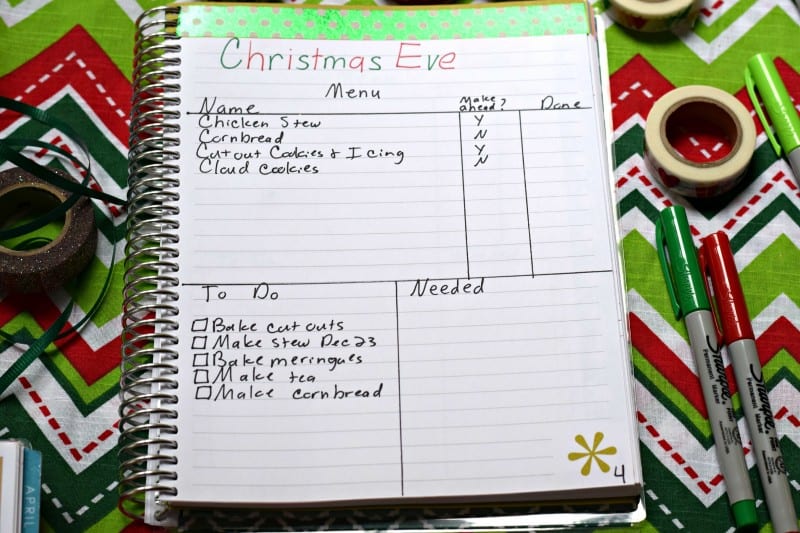 Christmas Eve
Menu
Name Make ahead? Done
Chicken Stew Y
Cornbread N
Cut out Cookies & Icing Y
Cloud cookies N
To Do
Needed
Bake cut outs
Make stew Dec 23
Bake meringues
Make tea
Make cornbread
4
APRIL
Sharpie
Permanent Marker
Sharpie
Permanent Marker